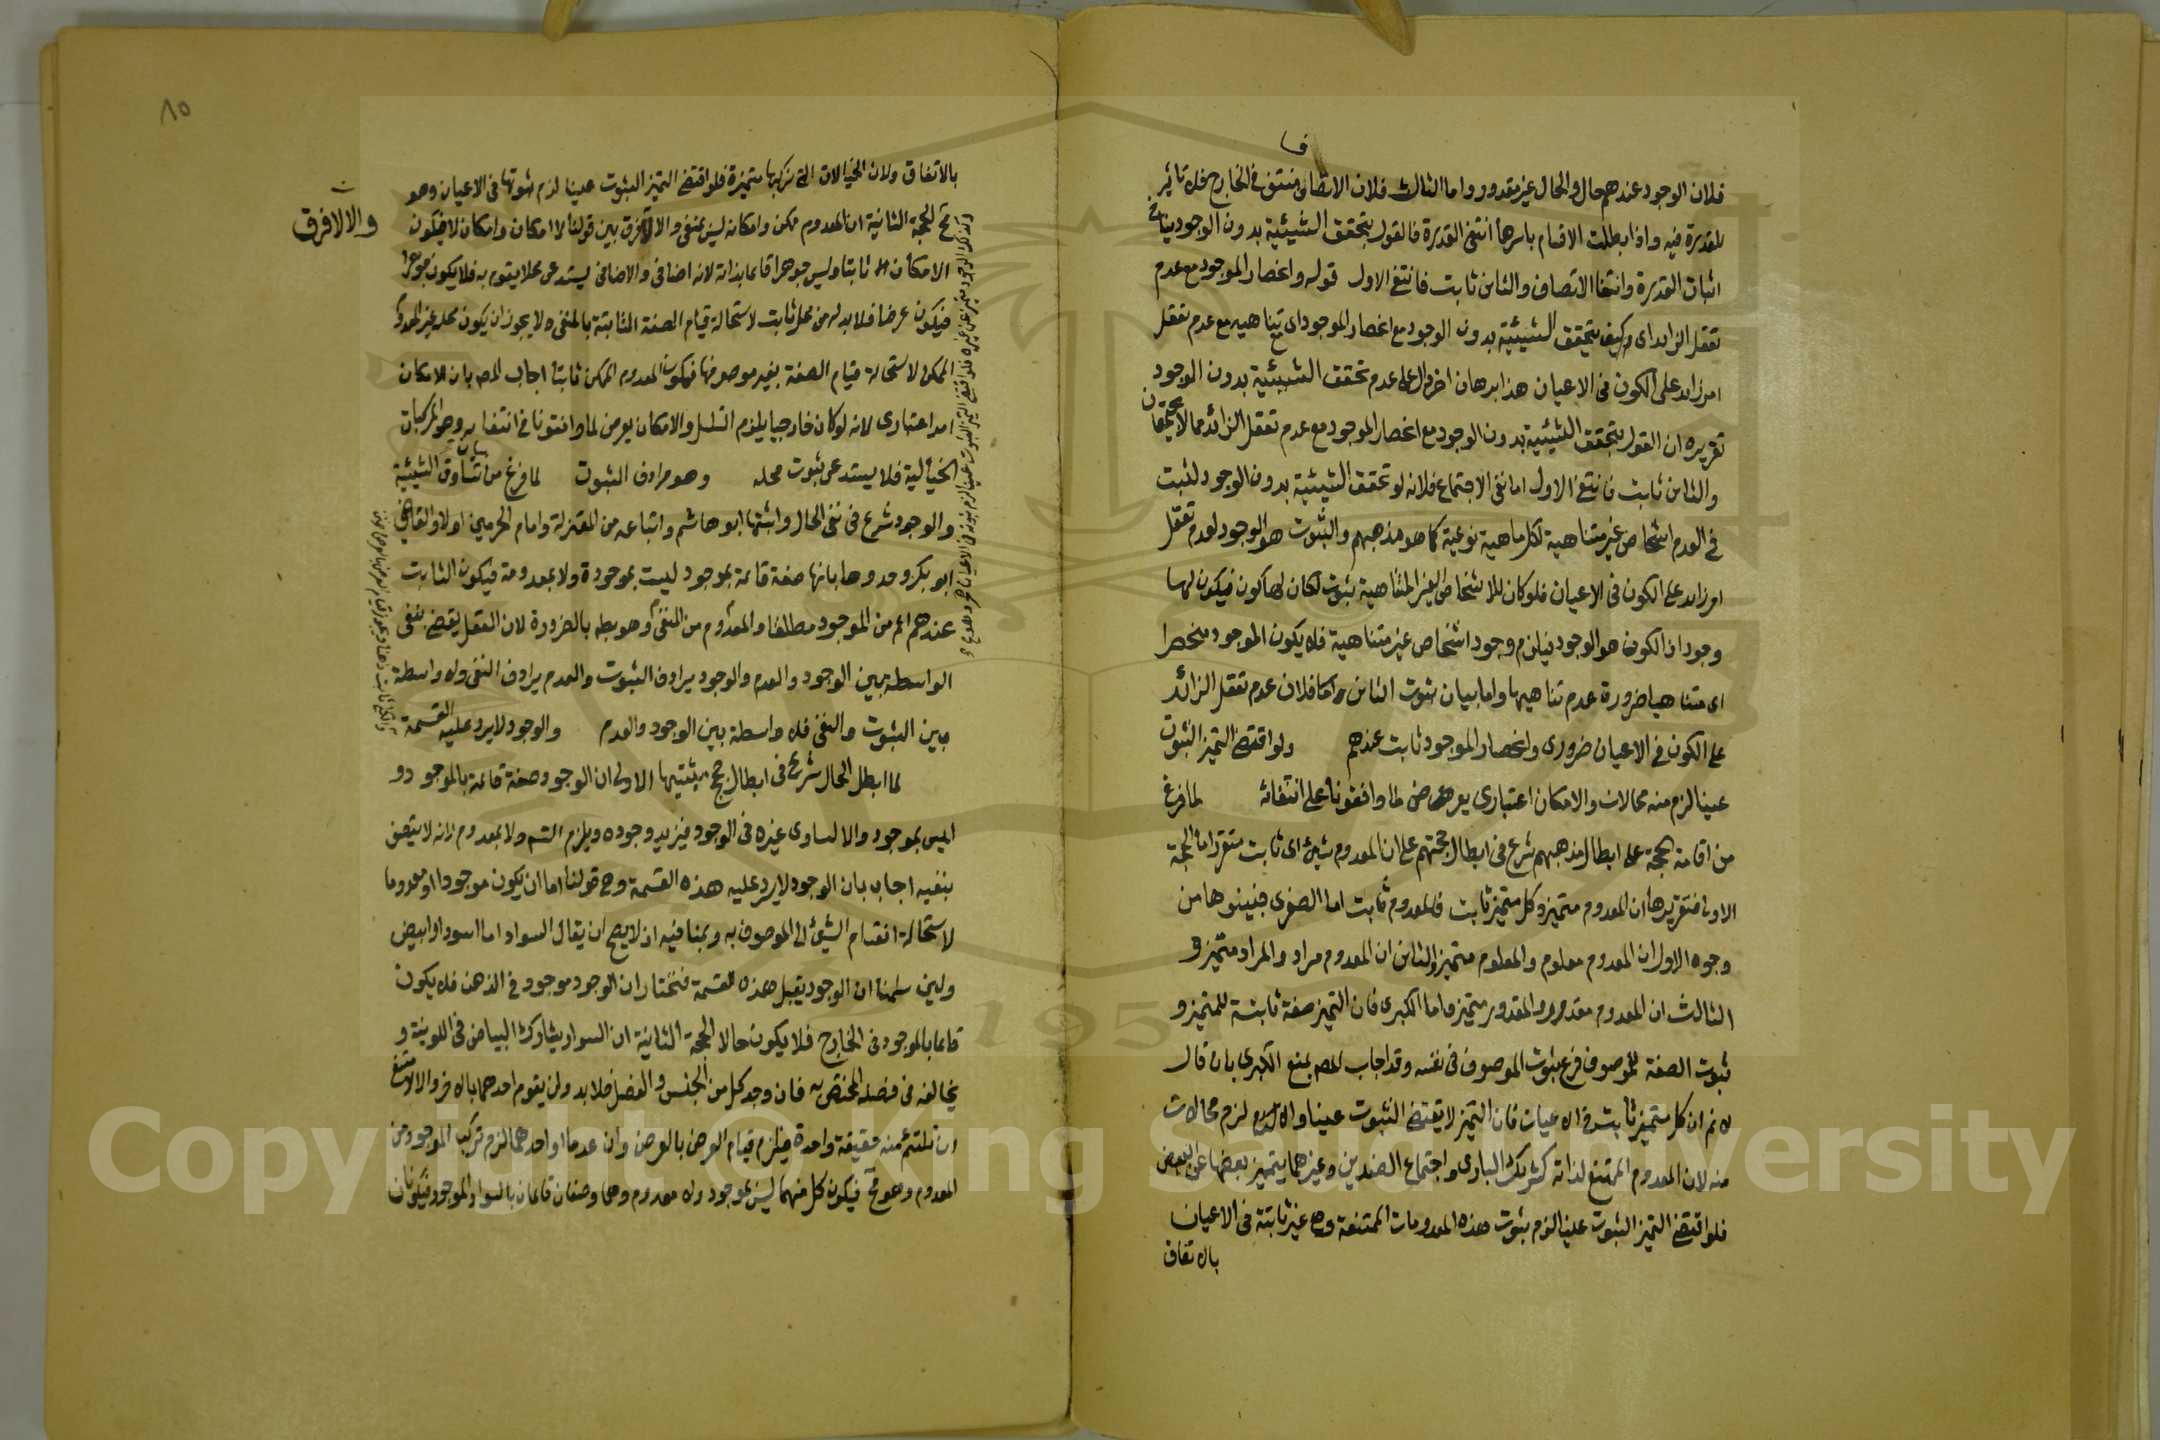 فلان الوجود عندهم حال والحال غير مقدور واما الثالث فلان الاتصاف منتف في الخارج فلا تاثير
للقدرة فيه واذا بطلت الاقسام باسرها انتفى القدرة فالقول بتحقق الشيئية بدون الوجود ينافي
اثبات القدرة وانتفا الاتصاف والثاني ثابت فانتفى الاول قوله وانحصار الموجود مع عدم
تعقل الزايد اي وكيف يتحقق الشيئية بدون الوجود مع انحصار الموجود اي تناهيه مع عدم تعقل
امر زايد على الكون في الاعيان هذا برهان اخر دال على عدم تحقق الشيئية بدون الوجود
تقريره ان القول بتحقق الشيئية بدون الوجود مع انحصار الموجود مع عدم تعقل الزائد مما لا يجتمعان
والثاني ثابت فانتفى الاول اما نفي الاجتماع فلانه لو تحقق الشيئية بدون الوجود لثبت
في العدم اشخاص غير متناهية لكل ماهية نوعية كما هو مذهبهم والثبوت هو الوجود لعدم تعقل
امر زايد على الكون في الاعيان فلو كان للاشخاص الغير المتناهية ثبوت لكان لها كون فيكون لها
وجود اذ الكون هو الوجود فيلزم وجود اشخاص غير متناهية فلا يكون الموجود منحصرا
اي متناهيا ضرورة عدم تناهيها واما بيان ثبوت الثاني فلان عدم تعقل الزائد
على الكون في الاعيان ضروري وانحصار الموجود ثابت عندهم ولو اقتضى التميز الثبوت
عينا لزم منه محالات والامكان اعتباري يعرض لما وافقونا على انتفائه لما فرغ
من اقامة الحجة على ابطال مذهبهم شرع في ابطال حجتهم على ان المعدوم شئ اي ثابت متقرر اما الحجة
الاولى فتقريرها ان المعدوم متميز وكل متميز ثابت فالمعدوم ثابت اما الصغرى فبينوها من
وجوه الاول ان المعدوم معلوم والمعلوم متميز والثاني ان المعدوم مراد والمراد متميز و
الثالث ان المعدوم مقدور والمقدور متميز واما الكبرى فان التميز صفة ثابتة للمتميز و
ثبوت الصفة للموصوف فرع ثبوت الموصوف في نفسه وقد اجاب المص بمنع الكبرى بان قال
لا نم ان كل متميز ثابت في الاعيان فان التميز لا يقتضي الثبوت عينا والا لزم محالات
منه لان المعدوم الممتنع لذاته كشريك الباري واجتماع الضدين وغيرهما يتميز بعضها عن البعض
فلو اقتضى التميز الثبوت عينا لزم ثبوت هذه المعدومات الممتنعة وهي غير ثابتة في الاعيان
بالاتفاق
٨٥
بالاتفاق ولان الخيالات التي نركبها متميزة فلو اقتضى التميز الثبوت عينا لزم ثبوتها في الاعيان وهو
مح الحجة الثانية ان المعدوم ممكن وامكانه ليس بمنفي والا لا فرق بين قولنا لا امكان وامكان لا فيكون
والا لا فرق
الامكان ثابتا وليس جوهرا قايما بذاته لانه اضافي والاضافي يستدعي محلا يقوم به فلا يكون جوهرا
فيكون عرضا فلا بد له من محل ثابت لاستحالة قيام الصفة الثابتة بالمنفي ولا يجوز ان يكون محله غير المعدوم
الممكن لاستحالة قيام الصفة بغير موصوفها فيكون المعدوم الممكن ثابتا اجاب المص بان الامكان
امر اعتباري لانه لو كان خارجيا يلزم التسلسل والامكان يعرض لما وافقونا في انتفايه وهو المركبات
الخيالية فلا يستدعي ثبوت محله وهو مرادف الثبوت لما فرغ من بيان تساوق الشيئية
والوجود شرع في نفي الحال واثبتها ابو هاشم واتباعه من المعتزلة وامام الحرمين اولا والقاضي
ابو بكر وحدوها بانها صفة قائمة بموجود ليست بموجودة ولا بمعدومة فيكون الثابت
عندهم اعم من الموجود مطلقا والمعدوم من المنفي وهو بط بالضرورة لان العقل يقضي بنفي
الواسطة بين الوجود والعدم والوجود يرادف الثبوت والعدم يرادف النفي ولا واسطة
بين الثبوت والنفي فلا واسطة بين الوجود والعدم والوجود لا يرد عليه القسمة
لما ابطل الحال شرع في ابطال حجج مثبتيها الاولى ان الوجود صفة قائمة بالموجود و
ليس بموجود والا لساوى غيره في الوجود فيزيد وجوده ويلزم التسم ولا بمعدوم لانه لا يتصف
بنفيه اجاب بان الوجود لا يرد عليه هذه القسمة وهي قولنا اما ان يكون موجودا او معدوما
لاستحالة انقسام الشئ الى الموصوف به وبمنافيه اذ لا يصح ان يقال السواد اما اسود او ابيض
ولئن سلمنا ان الوجود يقبل هذه القسمة فنختار ان الوجود موجود في الذهن فلا يكون
قايما بالموجود في الخارج فلا يكون حالا الحجة الثانية ان السواد يشارك البياض في اللونية و
يخالفه في فصله المختص به فان وجد كل من الجنس والفصل فلا بد وان يقوم احدهما بالاخر والا لامتنع
ان تلتئم منه حقيقة واحدة فيلزم قيام العرض بالعرض وان عدما او احدهما لزم تركب الموجود من
المعدوم وهو مح فيكون كل منهما ليس بموجود ولا معدوم وهما وصفان قائمان بالسواد الموجود فيكونان
Copyright © King Saud University
195